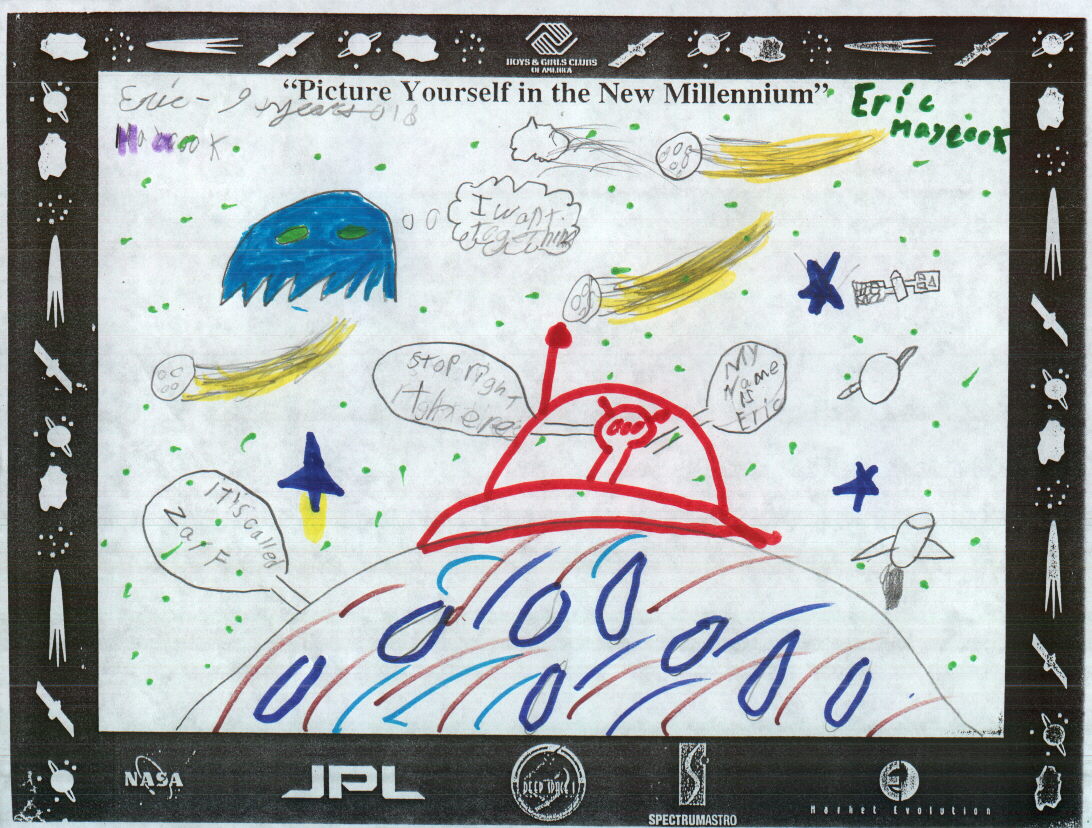 BOYS & GIRLS CLUBS
OF AMERICA
"Picture Yourself in the New Millennium"
Eric - 9 years old
Eric
Maycock
I want
stop right
My
Name
is
Eric
IT's called
Zarf
NASA
JPL
DEEP SPACE 1
SPECTRUMASTRO
Market Evolution